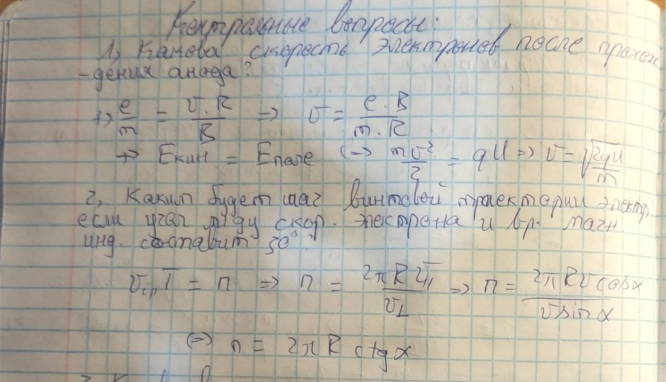 Контрольные вопросы:
1, Какова скорость электронов после прохож
-дения анода?
+> e/m = v·R/B => v = e·B/m·R
+> Eкин = Eполе <=> mv²/2 = qU => v = √(2qU/m)
2, Каким будет шаг винтовой траектории электр.
если угол между скор. электрона и в-р. магн
инд. составит 30°?
v₁₁T = n => n = 2πRv₁₁/v⊥ => n = 2πRv cosα/v sinα
<=> n = 2πR ctgα